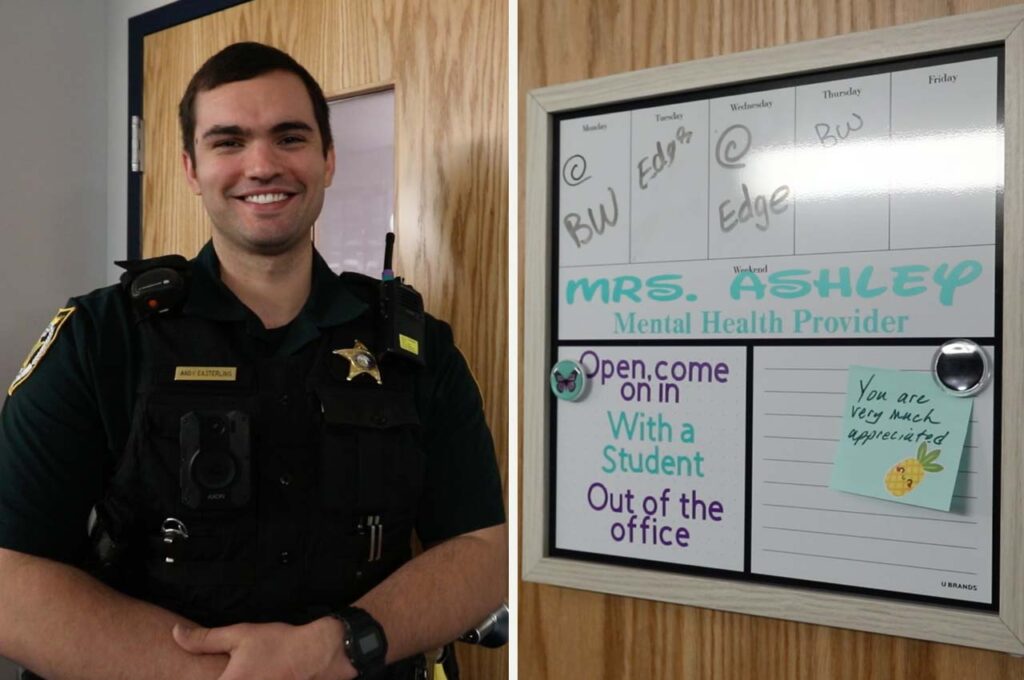 ANDY EASTERLING
AXON
Monday
Tuesday
Wednesday
Thursday
Friday
@
BW
Edge
@
Edge
BW
Weekend
MRS. ASHLEY
Mental Health Provider
Open, come
on in
With a
Student
Out of the
office
You are
very much
appreciated
U BRANDS